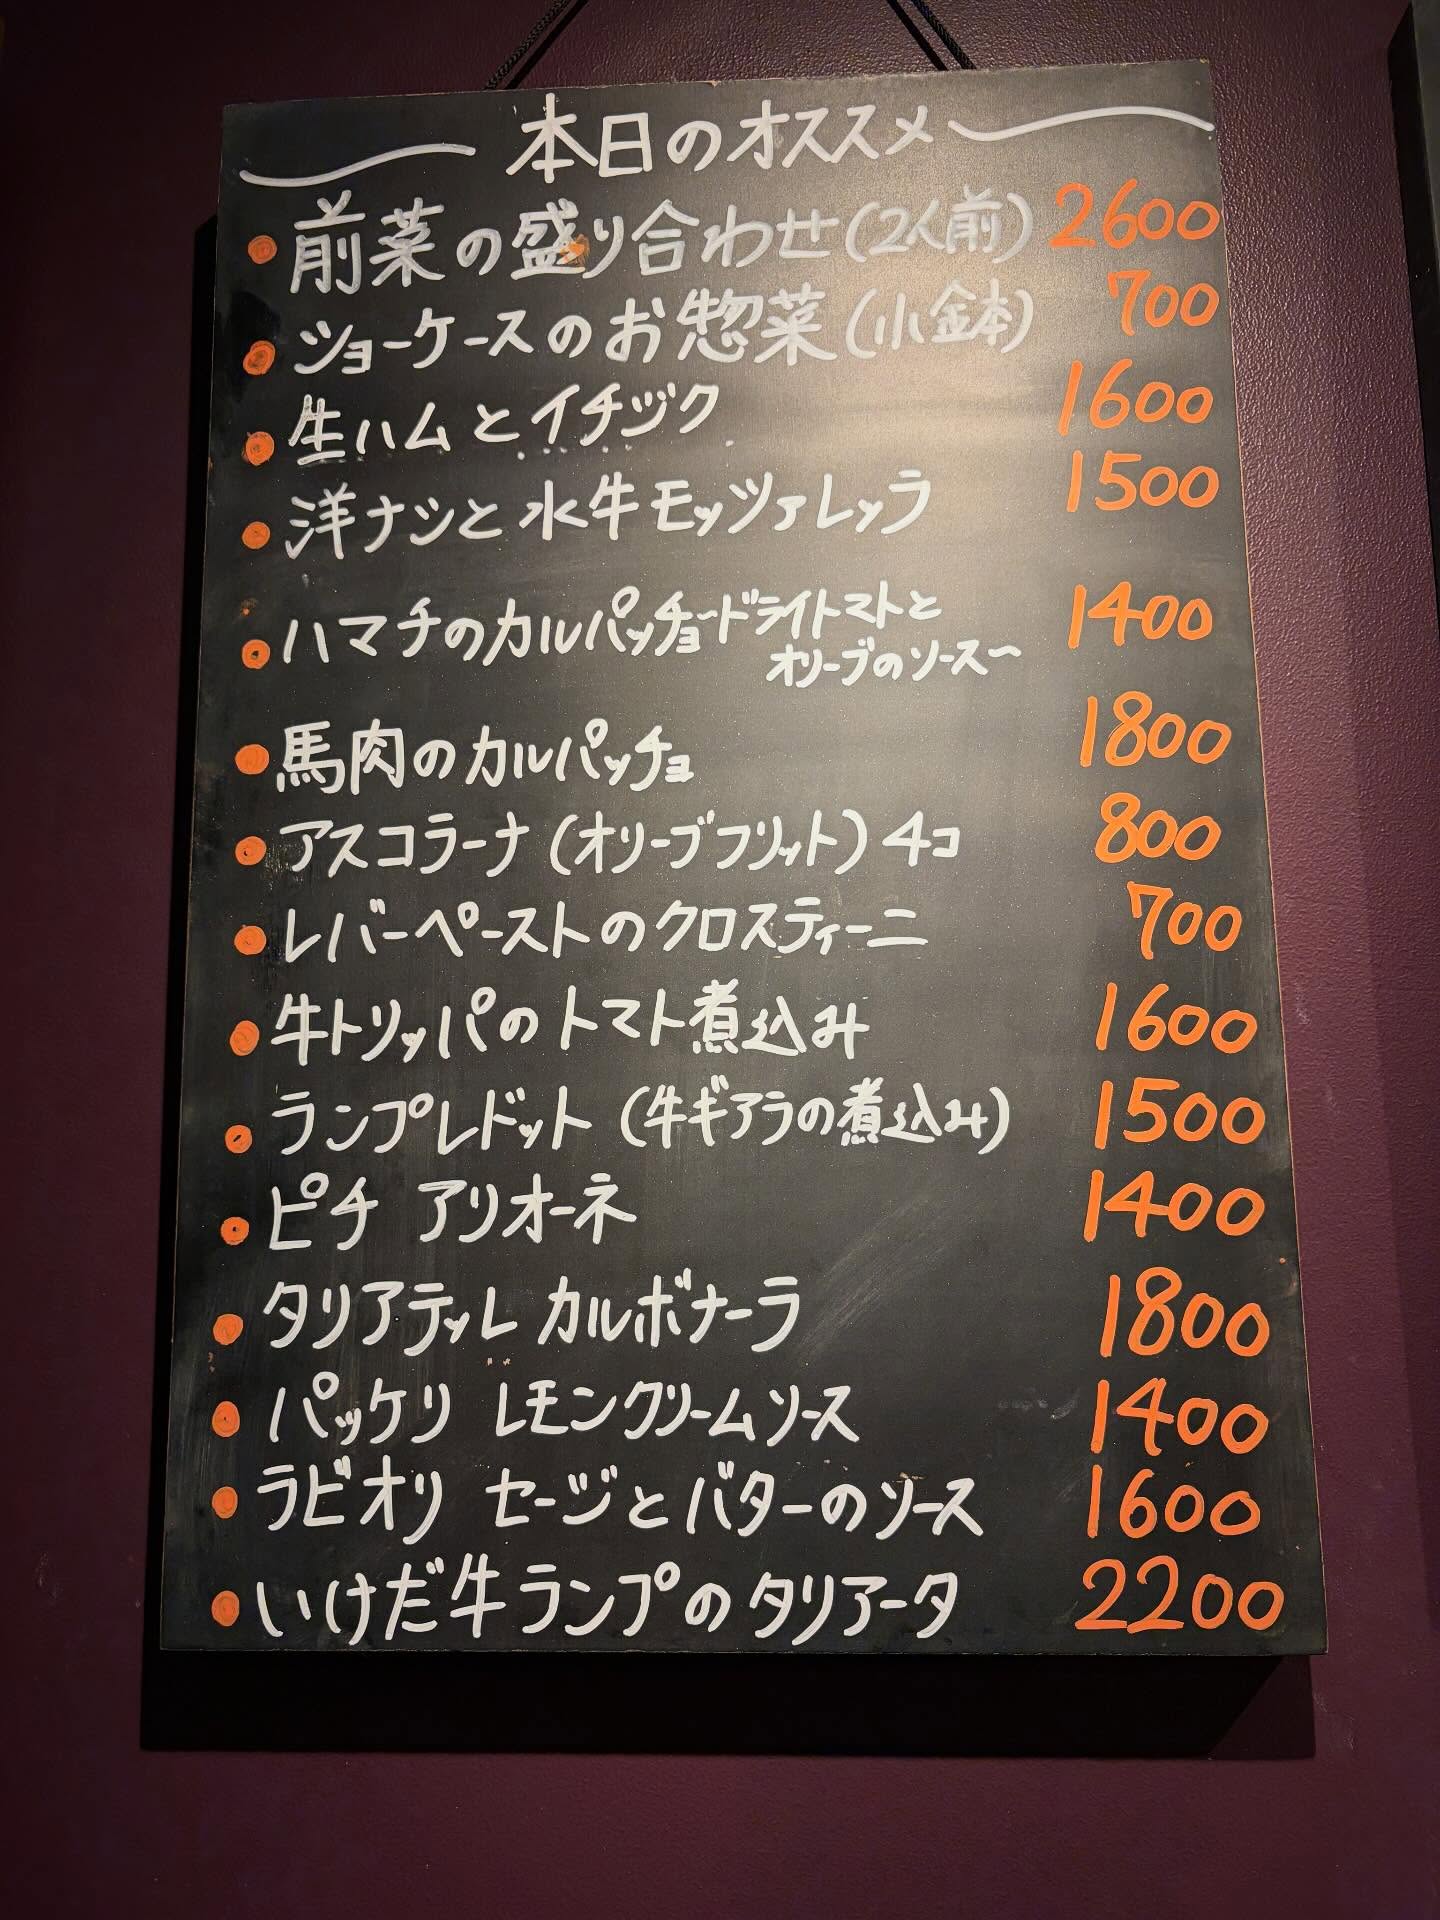 本日のオススメ
前菜の盛り合わせ(2人前) 2600
ショーケースのお惣菜(小鉢) 700
生ハムとイチヂク 1600
洋ナシと水牛モッツァレッラ 1500
ハマチのカルパッチョ〜ドライトマトと 1400
オリーブのソース〜
馬肉のカルパッチョ 1800
アスコラーナ(オリーブフリット)4コ 800
レバーペーストのクロスティーニ 700
牛トリッパのトマト煮込み 1600
ランプレドット(牛ギアラの煮込み) 1500
ピチ アリオーネ 1400
タリアテッレ カルボナーラ 1800
パッケリ レモンクリームソース 1400
ラビオリ セージとバターのソース 1600
いけだ牛ランプのタリアータ 2200